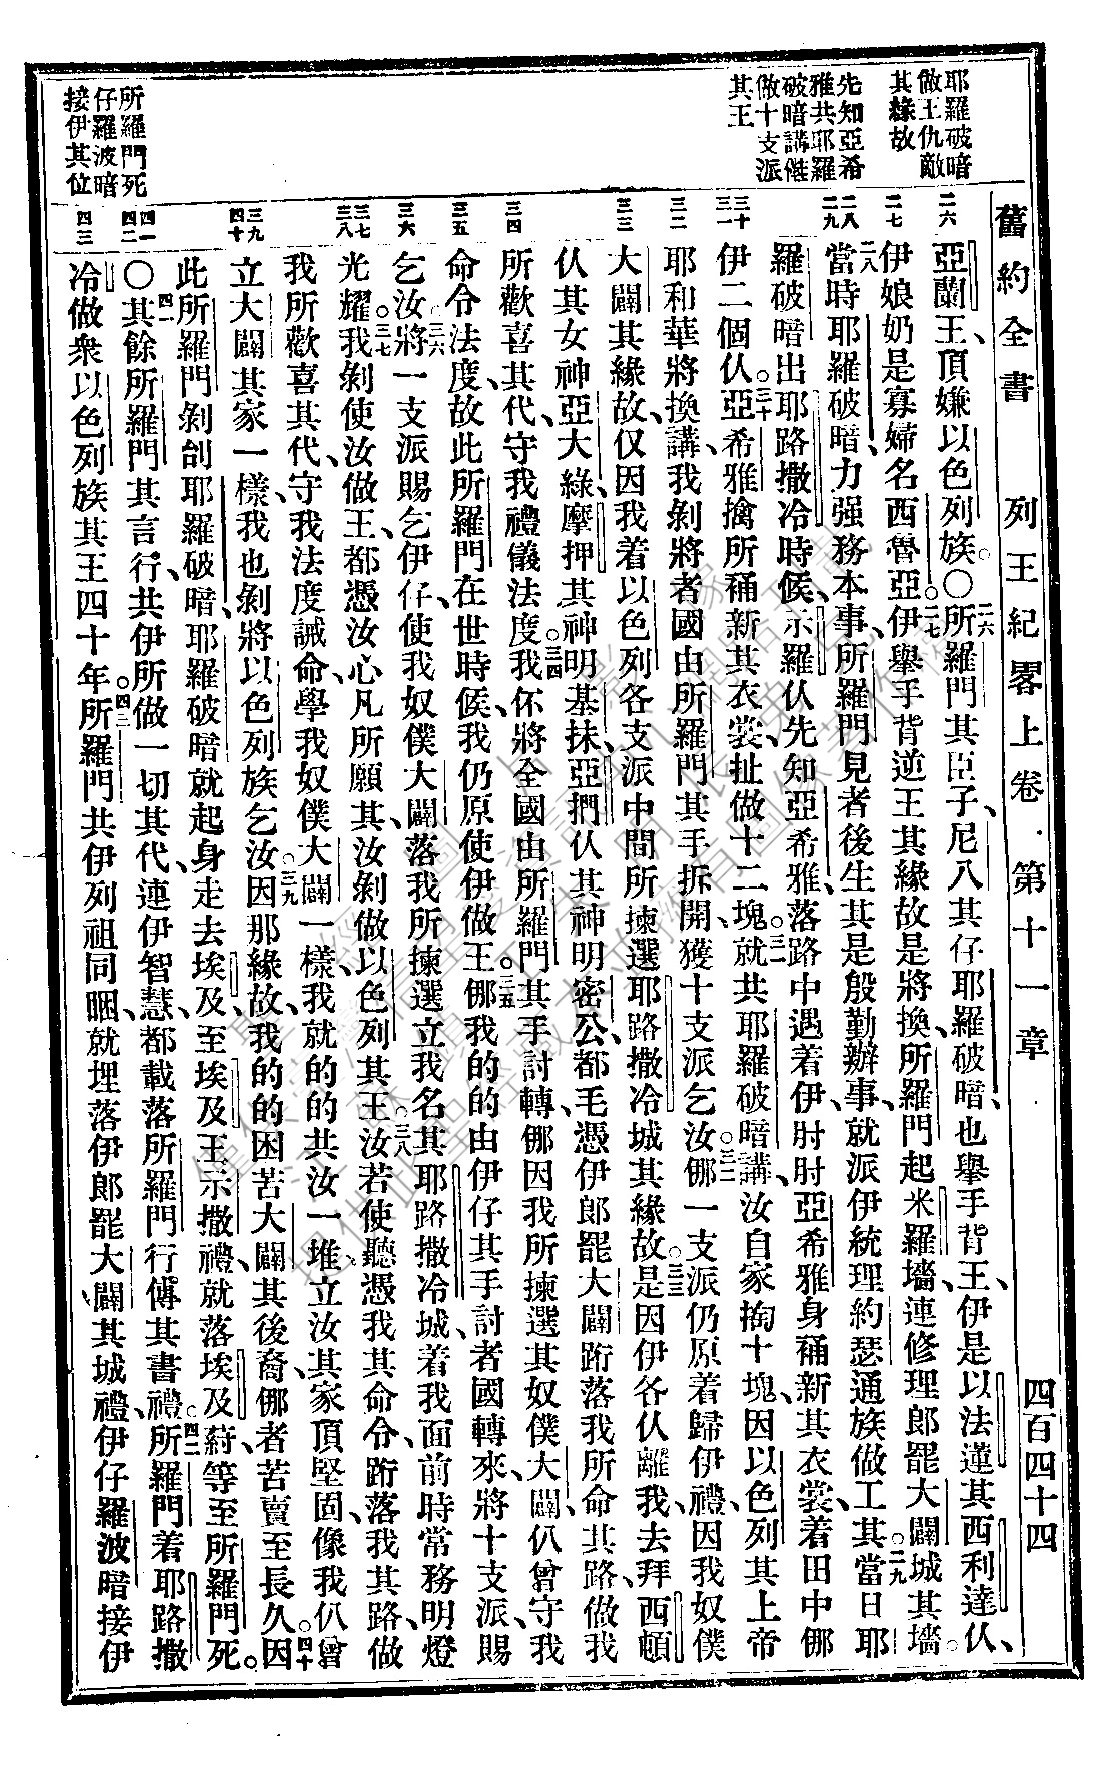 舊約全書 列王紀畧上卷 第十一章 四百四十四
耶羅破暗
做王仇敵
其緣故
先知亞希
雅共耶羅
破暗講僫
做十支派
其王
所羅門死
仔羅波暗
接伊其位
二六
亞蘭王、頂嫌以色列族。○二六所羅門其臣子、尼八其仔耶羅破暗、也舉手背王、伊是以法蓮其西利達仈、
二七
伊娘奶是寡婦名西魯亞。二七伊舉手背逆王其緣故、是將換、所羅門起米羅墻、連修理郎罷大闢城其墻。
二八 二九
二八當時耶羅破暗、力强務本事、所羅門見者後生其是殷勤辦事、就派伊統理約瑟通族做工其。二九當日耶
羅破暗出耶路撒冷時候、示羅仈先知亞希雅、落路中遇着伊、肘肘亞希雅身䘥新其衣裳、着田中㑚
三十 三一
伊二個仈。三十亞希雅擒所䘥新其衣裳、扯做十二塊。三一就共耶羅破暗講、汝自家掏十塊、因以色列其上帝
三二
耶和華將換講、我剝將者國由所羅門其手拆開、獲十支派乞汝。三二㑚一支派仍原着歸伊禮、因我奴僕
三三
大闢其緣故、仅因我着以色列各支派中間所揀選耶路撒冷城其緣故。三三是因伊各仈離我、去拜西頓
仈其女神亞大綠、摩押其神明基抹、亞捫仈其神明密公、都毛憑伊郎罷大闢跡落我所命其路、做我
三四
所歡喜其代、守我禮儀法度。三四我伓將全國由所羅門其手討轉、㑚因我所揀選其奴僕大闢、仈曾守我
三五
命令法度、故此所羅門在世時候、我仍原使伊做王。三五㑚我的的由伊仔其手討者國轉來、將十支派、賜
三六
乞汝。三六將一支派賜乞伊仔、使我奴僕大闢、落我所揀選立我名其耶路撒冷城、着我面前時常務明燈
三七 三八
光耀。三七我剝使汝做王、都憑汝心凡所願其、汝剝做以色列其王。三八汝若使聽憑我其命令、跡落我其路、做
我所歡喜其代、守我法度誡命、學我奴僕大闢一樣、我就的的共汝一堆、立汝其家、頂堅固、像我仈曾
三九 四十
立大闢其家一樣、我也剝將以色列族乞汝。三九因那緣故、我的的困苦大闢其後裔、㑚者苦賣至長久。四十因
此所羅門剝刣耶羅破暗、耶羅破暗就起身走去埃及、至埃及王示撒禮、就落埃及䇄等至所羅門死。
四一 四二
○四一其餘所羅門其言行、共伊所做一切其代、連伊智慧、都載落所羅門行傳其書禮。四二所羅門着耶路撒
四三
冷做衆以色列族其王四十年。四三所羅門共伊列祖同睏、就埋落伊郎罷大闢其城禮、伊仔羅波暗接伊